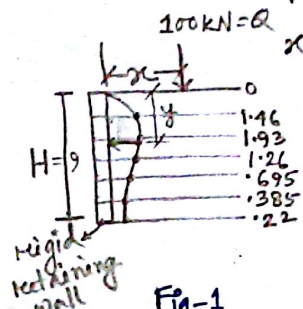 100kN=Q
x
x
0
1.46
y
1.93
H=9
1.26
.695
.385
.22
rigid
retaining
wall
Fig-1